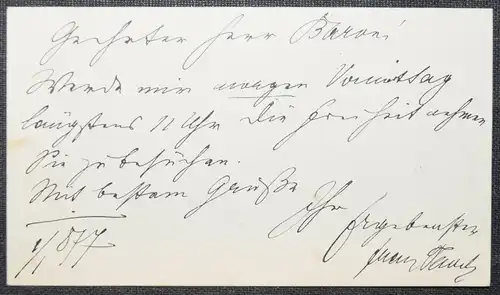 Geehrter Herr Baron!
Werde mir morgen Vormittag
längstens 11 Uhr die Freiheit nehmen
Sie zu besuchen.
Mit bestem Gruße
Ihr
Ergebenster
1/1 877
Franz